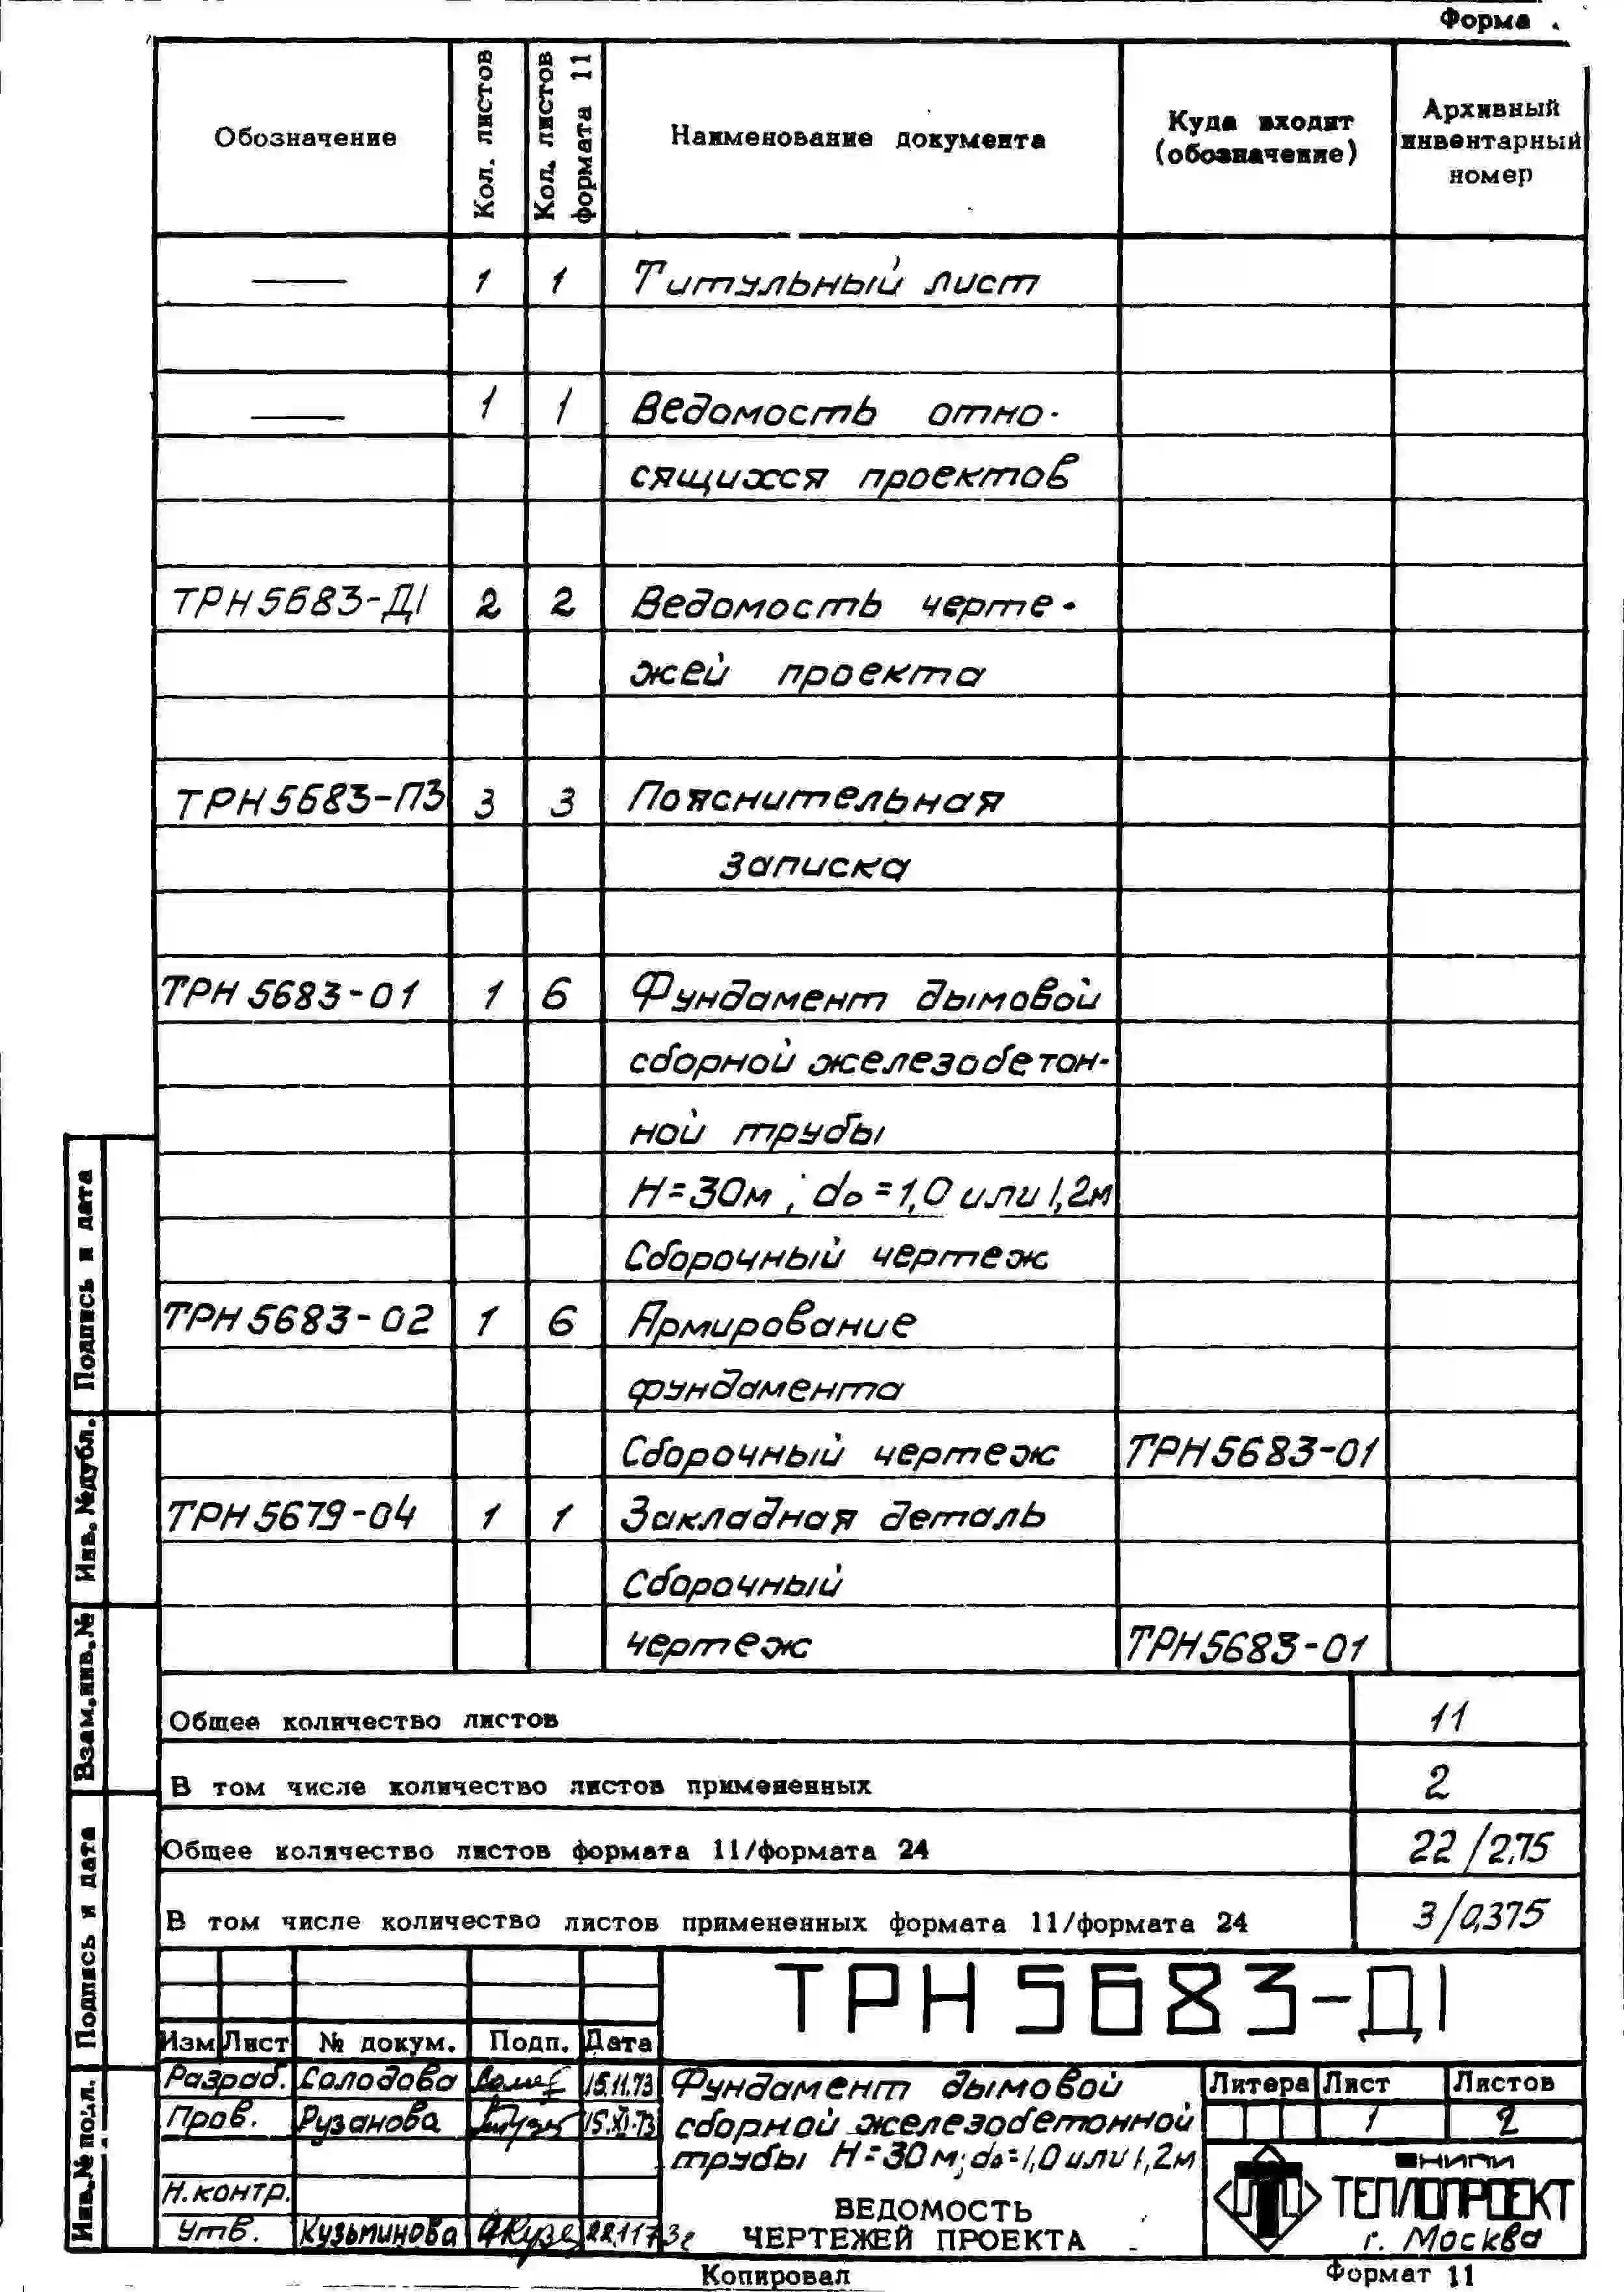 Форма
Обозначение
Кол. листов
Кол. листов формата 11
Наименование документа
Куда входит (обозначение)
Архивный инвентарный номер
— 1 1 Титульный лист
— 1 1 Ведомость отно-
сящихся проектов
ТРН 5683-Д1 2 2 Ведомость черте-
жей проекта
ТРН 5683-ПЗ 3 3 Пояснительная
записка
ТРН 5683-01 1 6 Фундамент дымовой
сборной железобетон-
ной трубы
Н=30м; d₀=1,0 или 1,2м
Сборочный чертеж
ТРН 5683-02 1 6 Армирование
фундамента
Сборочный чертеж ТРН 5683-01
ТРН 5679-04 1 1 Закладная деталь
Сборочный
чертеж ТРН 5683-01
Общее количество листов 11
В том числе количество листов примененных 2
Общее количество листов формата 11/формата 24 22/2,75
В том числе количество листов примененных формата 11/формата 24 3/0,375
Подпись и дата
Инв. №дубл.
Взам.инв.№
Подпись и дата
Инв.№ подл.
ТРН 5683-Д1
Изм Лист № докум. Подп. Дата
Разраб. Солодова 15.11.73
Пров. Рузанова 15.XI.73
Н.контр.
Утв. Кузьминова 22.11.73г
Фундамент дымовой
сборной железобетонной
трубы Н=30м; d₀=1,0 или 1,2м
ВЕДОМОСТЬ
ЧЕРТЕЖЕЙ ПРОЕКТА
Литера Лист Листов
1 2
ВНИПИ
ТЕПЛОПРОЕКТ
г. Москва
Копировал
Формат 11